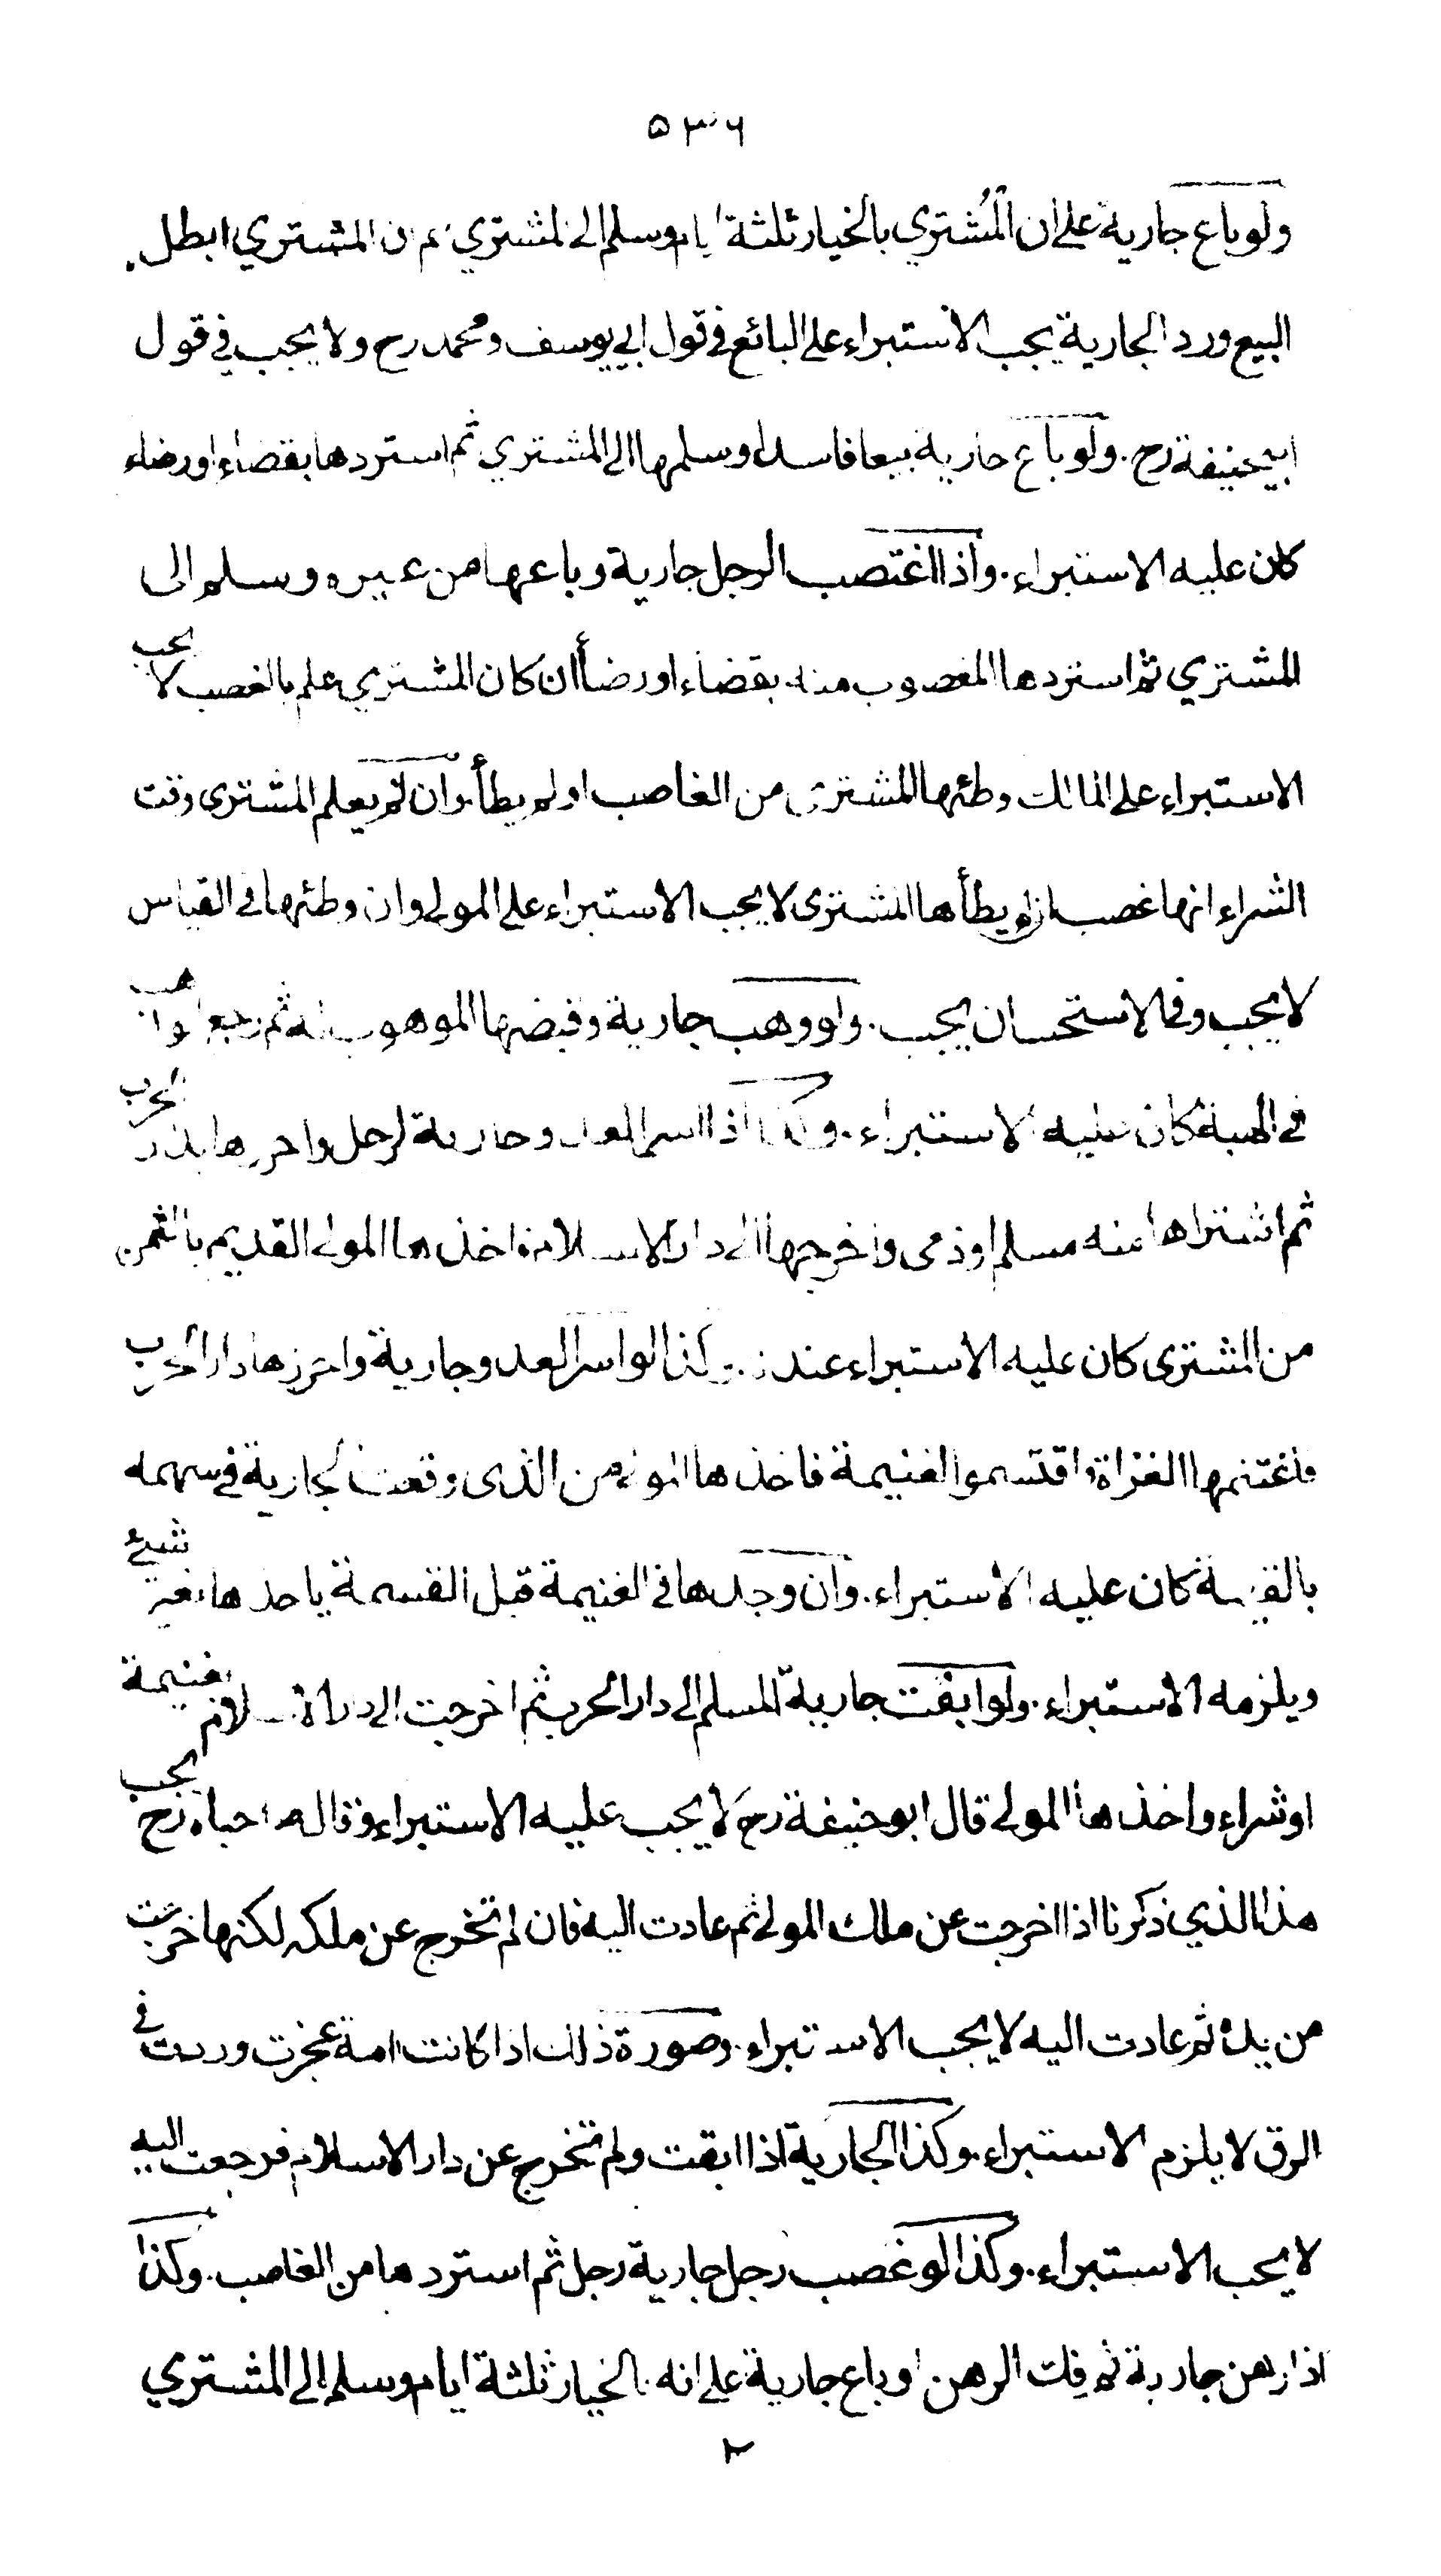 ۵۳۶
ولو باع جارية على ان المُشترى بالخيار ثلثة ايام وسلم الى المشتري ثم ان المشتري ابطل
البيع ورد الجارية يجب الاستبراء على البائع فى قول ابي يوسف ومحمد رح ولا يجب في قول
ابيحنيفة رح . ولو باع جارية بيعا فاسدا وسلمها الى المشتري ثم استردها بقضاء او رضاء
كان عليه الاستبراء . واذا اغتصب الرجل جارية وباعها من غيره وسلم الى
المشتري ثم استردها المغصوب منه بقضاء او رضا أن كان المشتري علم بالغصب لا يجب
الاستبراء على المالك وطئها المشترى من الغاصب او لم يطأ . وان لم يعلم المشترى وقت
الشراء انها غصب ان لم يطأها المشترى لا يجب الاستبراء على المولى وان وطئها فى القياس
لا يجب وفى الاستحسان يجب . ولو وهب جارية وقبضها الموهوب له ثم رجع الواهب
في الهبة كان عليه الاستبراء . وكذا اذا اسر العدو جارية لرجل واحرزها بدار الحرب
ثم اشتراها منه مسلم او ذمى واخرجها الى دار الاسلام فاخذها المولى القديم بالثمن
من المشترى كان عليه الاستبراء عندنا . وكذا لو اسر العدو جارية واحرزها دار الحرب
فاغتنمها الغزاة واقتسموا الغنيمة فاخذها المولى من الذى وقعت الجارية في سهمه
بالقيمة كان عليه الاستبراء . وان وجدها فى الغنيمة قبل القسمة ياخذها بغير شيئ
ويلزمه الاستبراء . ولو ابقت جارية المسلم الى دار الحرب ثم اخرجت الى دار الاسلام بغنيمة
او شراء واخذها المولى قال ابو حنيفة رح لا يجب عليه الاستبراء وقال صاحباه رح يجب
هذا الذي ذكرنا اذا خرجت عن ملك المولى ثم عادت اليه فان لم تخرج عن ملكه لكنها خرجت
من يده ثم عادت اليه لا يجب الاستبراء . وصورة ذلك اذا كاتب امة عجزت وردت في
الرق لا يلزم الاستبراء . وكذا الجارية اذا ابقت ولم تخرج عن دار الاسلام فرجعت اليه
لا يجب الاستبراء . وكذا لو غصب رجل جارية رجل ثم استردها من الغاصب . وكذا
اذا رهن جارية ثم فك الرهن او باع جارية على انه بالخيار ثلثة ايام وسلم الى المشتري
٢